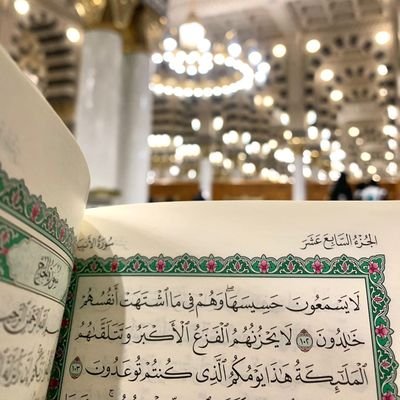 الجزء السابع عشر
سورة الأنبياء
لَا يَسْمَعُونَ حَسِيسَهَا ۖ وَهُمْ فِي مَا اشْتَهَتْ أَنفُسُهُمْ
خَالِدُونَ ١٠٢ لَا يَحْزُنُهُمُ الْفَزَعُ الْأَكْبَرُ وَتَتَلَقَّاهُمُ
الْمَلَائِكَةُ هَٰذَا يَوْمُكُمُ الَّذِي كُنتُمْ تُوعَدُونَ ١٠٣
سورة الحج